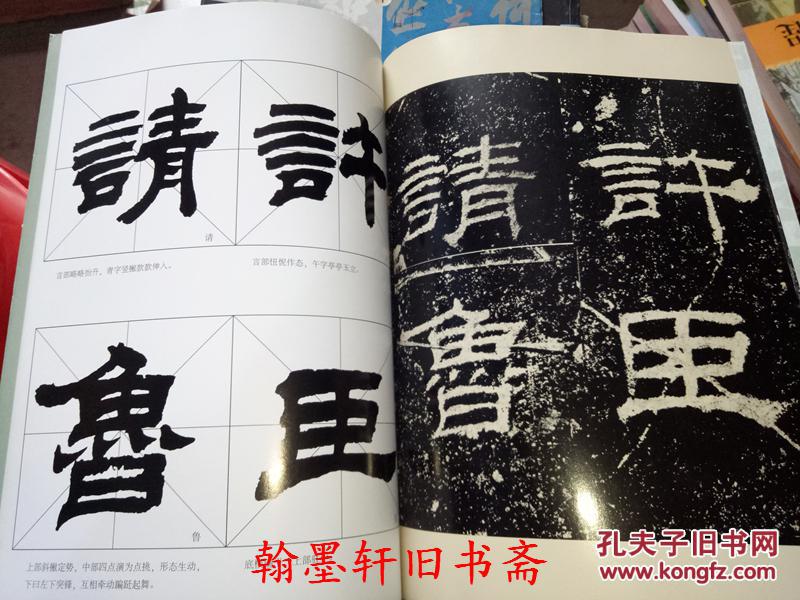 請 許
请
言部略略抬升，青字竖撇款款伸入。
言部忸怩作态，午字亭亭玉立。
魯 臣
鲁
上部斜撇定势，中部四点演为点挑，形态生动，
下曰左下突锋，互相牵动蹁跹起舞。
請 許
魯 臣
翰墨轩旧书斋
孔夫子旧书网
WWW.KONGFZ.COM